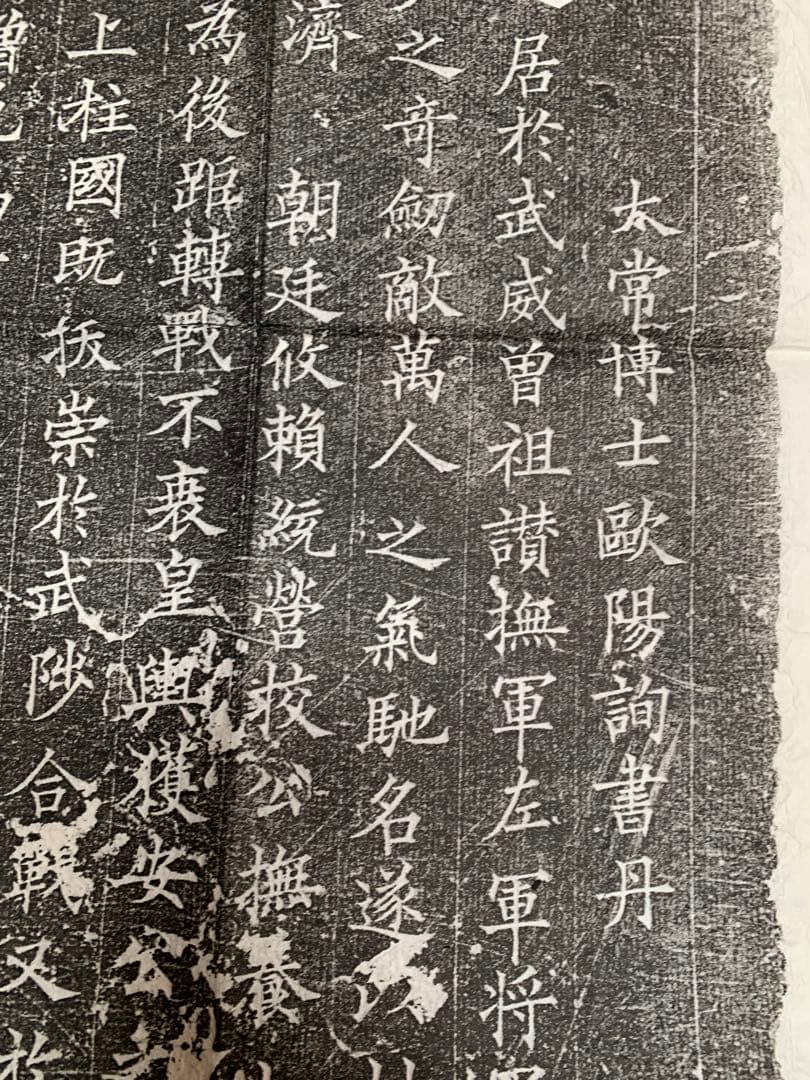 太常博士歐陽詢書丹
居於武威曾祖讃撫軍左軍将
之奇劒敵萬人之氣馳名遂以
濟 朝廷攸賴統營校公撫養
為後距轉戰不衰皇輿獲安公
上柱國既扳崇於武陟合戰又於